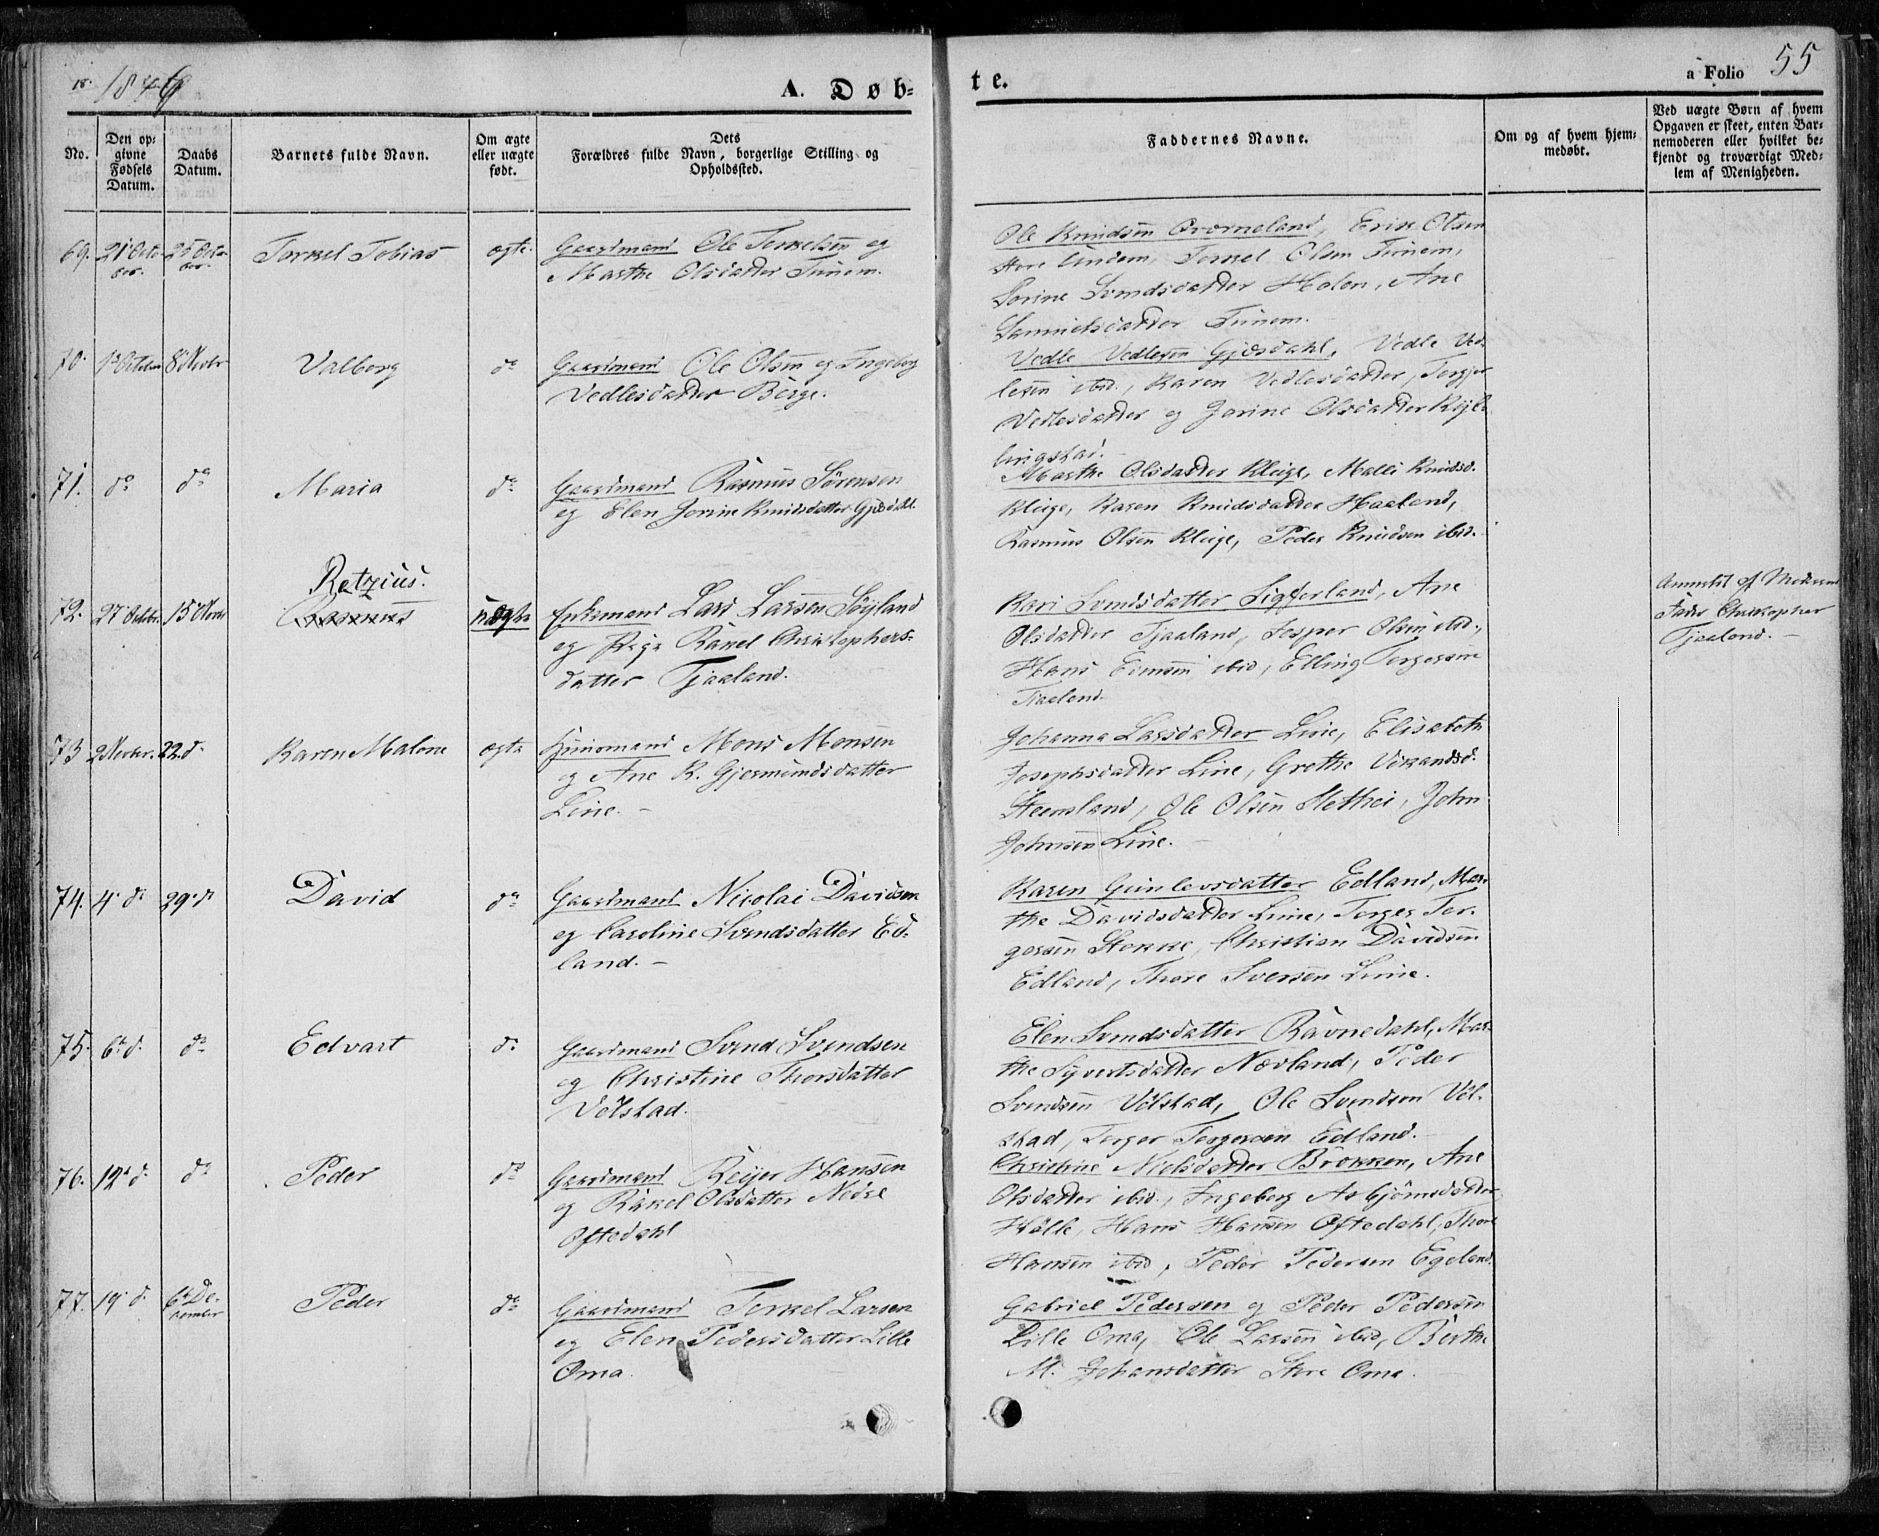 18. 1846
A. Døb=
te.
a Folio 55
No.
Den op=
givne
Fødsels
Datum.
Daabs
Datum.
Barnets fulde Navn.
Om ægte
eller uægte
født.
Dets
Forældres fulde Navn, borgerlige Stilling og
Opholdssted.
Faddernes Navne.
Om og af hvem hjem=
medøbt.
Ved uægte Børn af hvem
Opgaven er skeet, enten Bar=
nemoderen eller hvilket be=
kjendt og troværdigt Med=
lem af Menigheden.
69. 21 Octo-
ber.
25 Octo-
ber.
Torkel Tobias
ægte.
Gaardmand Ole Torkelsen og
Marthe Olsdatter Tunem.
Ole Knudsen Qvorneland, Erik Olsen
Store Lindem, Torkel Olsen Tunem,
Sorine Svendsdatter Holen, Ane
Samuelsdatter Tunem.
70. 8 Novbr
Valborg
do
Gaardmand Ole Olsen og Ingeborg
Vedlesdatter Berge.
Vedle Vedlesen Gjesdahl, Vedle Ved-
lesen ibid., Karen Vedlesdatter,
Vedlesdatter og Jorine Olsdatter Kyl-
lingstad.
71. do do
Maria
do
Gaardmand Rasmus Sörensen
og Elen Jorine Knudsdatter Gjesdahl.
Marthe Olsdatter Kleige, Malli Knudsd.
Kleige, Karen Knudsdatter Haaland,
Rasmus Olsen Kleige, Peder Knudsen ibid.
72. 27 Octobr. 15 Novbr
Retzius.
Rasmus
uægte
Enkemand Lars Larsen Söyland
og Pige Rakel Christophers-
datter Tjaaland.
Kari Svendsdatter Ane
Olsdatter Tjaaland, Jesper Olsen ibid.,
Hans ibid, Elling Torgersen
Tjaaland.
Anmeldt af Moderens
Fader Christopher
Tjaaland. -
73 2 Novbr. 22 d.
Karen Malene
ægte
Huusmand Mons Monsen
og Ane K. Gjermundsdatter
Line. -
Johanna Larsdatter Line, Elisabeth
Josephsdatter Line, Grethe
Steensland, Ole Olsen John
Johnsen Line.
74. 4 d. 29 d.
David
do
Gaardmand Nicolai Davidsen
og Caroline Svendsdatter Ed-
land. -
Karen Gunlevsdatter Edland, Mar-
the Davidsdatter Line, Torger Tor-
gersen Stokke, Christian Davidsen
Edland, Thore Iversen Line.
75. 6 d. do
Edvart
d.
Gaardmand Svend Svendsen
og Christine Thorsdatter
Völstad.
Elen Svendsdatter Ravnedahl, Mar-
the Syvertsdatter Nævland, Peder
Svendsen Völstad, Ole Svendsen Völ-
stad, Torger Torgersen Edland.
76. 12 d. do
Peder
do
Gaardmand Reijer Hansen
og Rakel Olsdatter Nedre
Oftedahl
Christine Nielsdatter Brekken, Ane
Olsdatter ibid., Ingeborg Asbjörnsdatter
Hölle, Hans Hansen Oftedahl, Thore
Hansen ibid, Peder Pedersen Egeland.
77. 19 d. 6 De-
cember
Peder
do
Gaardmand Torkel Larsen
og Elen Pedersdatter Lille
Oma.
Gabriel Pedersen og Peder Pedersen
Lille Oma, Ole Larsen ibid, Berthe
M. Johansdatter Store Oma.